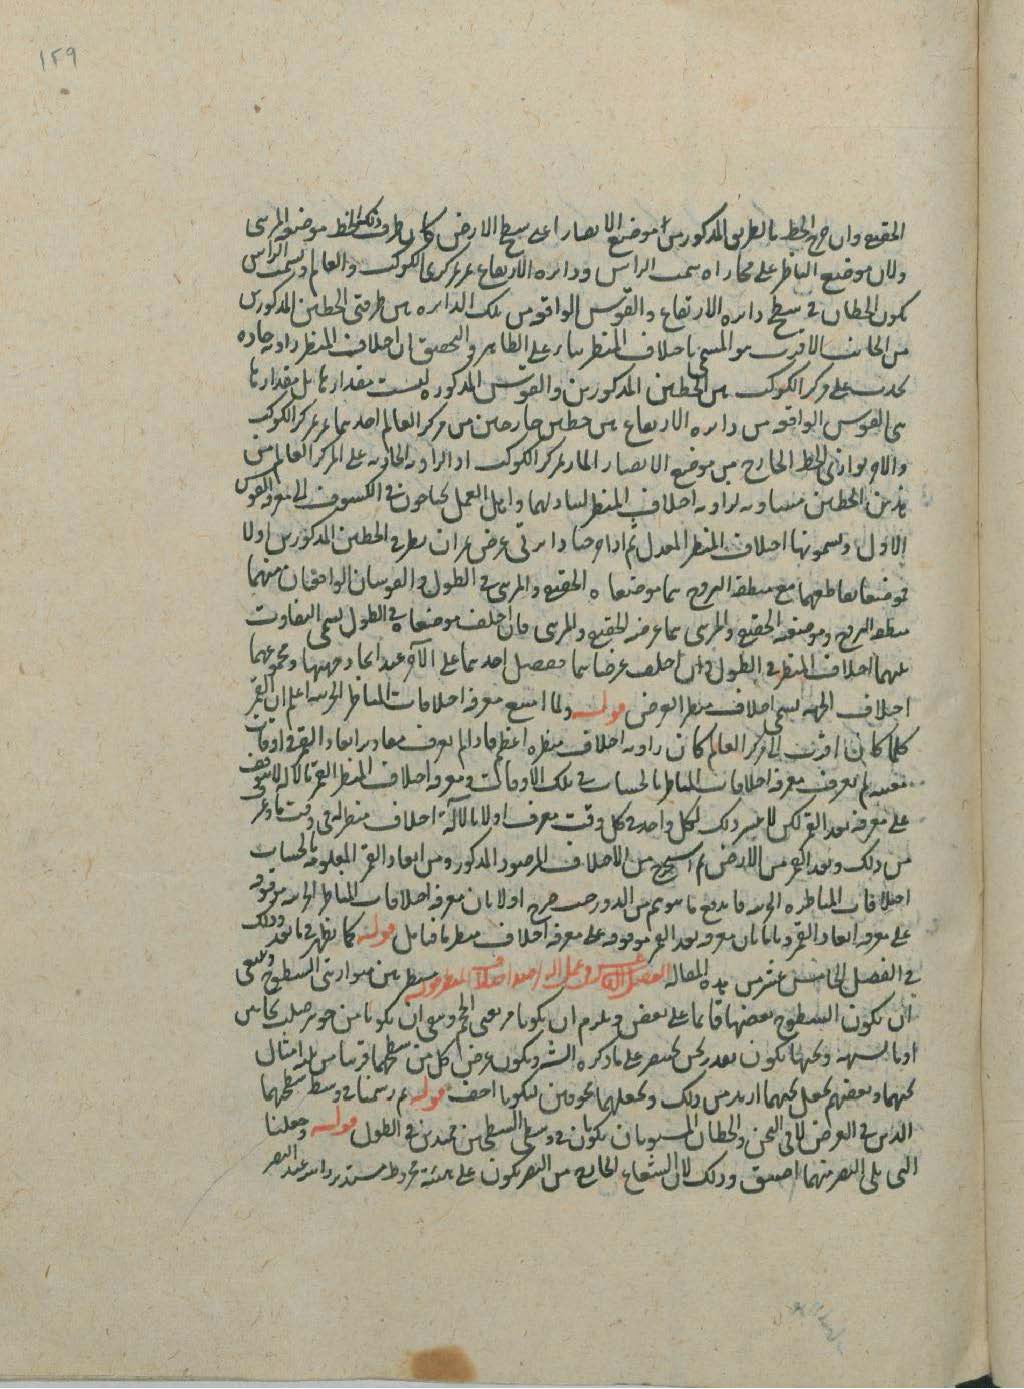 ١٢٩
الحقيقي وان خرج الخط بالطريق المذكور من موضع الابصار اعلى سطح الارض كان طرف ذلك الخط موضعه المرئي
ولان موضع الناظر على محاذاه سمت الراس ودايره الارتفاع تمر بمركزي الكوكب والعالم وبسمت الراس
يكون الخطان في سطح دايره الارتفاع والقوس الواقعه من تلك الدايره بين طرفي الخطين المذكورين
من الجانب الاقرب هو المسمى باختلاف المنظر بناء على الظاهر والتحقيق ان اختلاف المنظر زاويه حاده
تحدث على مركز الكوكب بين الخطين المذكورين والقوس المذكوره ليست مقدارها بل مقدارها
هي القوس الواقعه من دايره الارتفاع بين خطين خارجين من مركز العالم احدهما يمر بمركز الكوكب
والاخر يوازي الخط الخارج من موضع الابصار المار بمركز الكوكب اذ الزاويه الحادثه على مركز العالم من
هذين الخطين مساويه لزاويه اختلاف المنظر لتبادلهما واهل العمل يحتاجون في الكسوف الى معرفه القوس
الاول ويسمونها اختلاف المنظر المعدل ثم اذا اخرجنا دايرتي عرض تمران بطرفي الخطين المذكورين اولا
فموضعا تقاطعهما مع منطقه البروج هما موضعاه الحقيقي والمرئي في الطول والقوسان الواقعتان منهما
منطقه البروج وموضعيه الحقيقي والمرئي هما عرضه الحقيقي والمرئي فان اختلف موضعاه في الطول يسمى التفاوت
بينهما اختلاف المنظر في الطول وان اختلف عرضاهما ففضل احدهما على الآخر عند اتحاد جهتهما ومجموعهما
اختلاف الجهه يسمى اختلاف منظر العرض قوله ولما امتنع معرفه اختلافات المناظر الجزئيه اعلم ان القمر
كلما كان اقرب الى مركز العالم كان زاويه اختلاف منظره اعظم فما لم يعرف مقادير ابعاد القمر في اوقات
معينه لم يعرف معرفه اختلافات المناظر بالحساب في تلك الاوقات ومعرفه اختلاف المنظر القمر بالآله لا يتوقف
على معرفه بعد القمر لكن لا يتيسر ذلك لكل واحد في كل وقت معرف اولا بالآله اختلاف منظر له في وقت ما وعرف
من ذلك وبعد القمر من الارض ثم استخرج من الاختلاف المرصود المذكور ومن ابعاد القمر المعلومه بالحساب
اختلافات المناظره الجزئيه فاندفع ما يتوهم من الدور حيث صرح اولا بان معرفه اختلافات المناظر الجزئيه موقوفه
على معرفه ابعاد القمر وثانيا بان معرفه بعد القمر موقوفه على معرفه اختلاف منظر ما فتامل قوله كما نظهر فيما بعد وذلك
في الفصل الخامس عشر من هذه المقاله الفصل الثاني عشر في عمل اله اختلاف المنظر قوله مسطرتين متوازيتي السطوح ويعني
ان يكون السطوح بعضها قائما على بعض ويلزم ان يكونا مربعي الحجم ويبغي ان يكونا من جوهر صلب كنحاس
او ما يشبهه ونحتها يكون بقدر يحسن عليه ما ذكره الشرح ويكون عرض كل من سطحهما قريبا من ثلثه امثال
نحتهما وبعضهم يجعل نحتهما ازيد من ذلك ويجعلهما مجوفتين ليكونا اخف قوله ثم رسمنا في وسط سطحهما
الذين في العرض لا في الثخن والخطان المرسومان يكونان في وسطي السطحين ممتدين في الطول قوله وجعلنا
التي يلي البصر منهما اضيق وذلك لان الشعاع الخارج من البصر يكون على هيئة مخروط مستدير راسه عند البصر